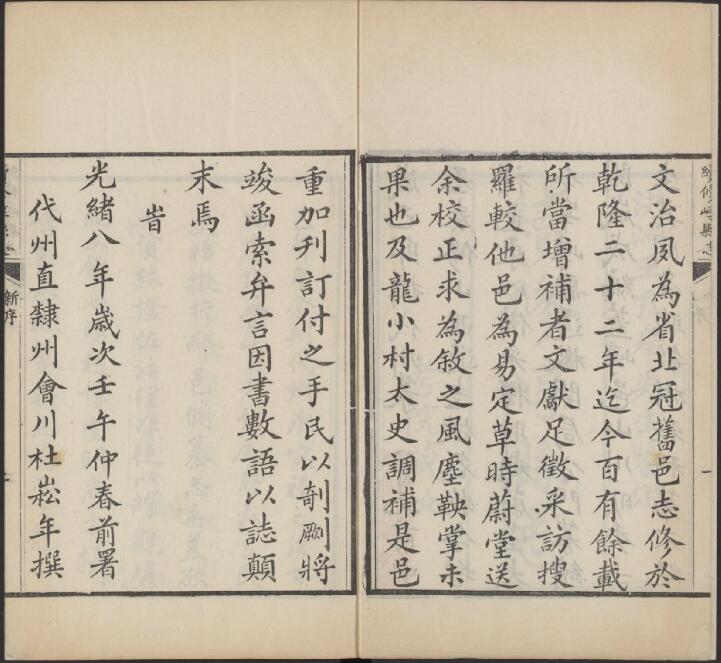 續修崞縣志
文治夙為省北冠舊邑志修於
乾隆二十二年迄今百有餘載
所當增補者文獻足徵采訪搜
羅較他邑為易定草時蔚堂送
余校正求為敘之風塵鞅掌未
果也及龍小村太史調補是邑
重加刋訂付之手民以剞劂將
竣函索弁言因書數語以誌顛
末焉
旹
光緒八年歲次壬午仲春前署
代州直隸州會川杜崧年撰
新序